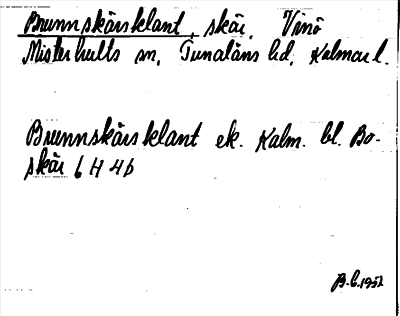 Brunnskärsklant, skär, Vinö
Misterhults sn, Tunaläns hd, Kalmar l.
Brunnskärsklant ek. Kalm. bl. Bo-
skär 6 H 4b
B.C. 1952